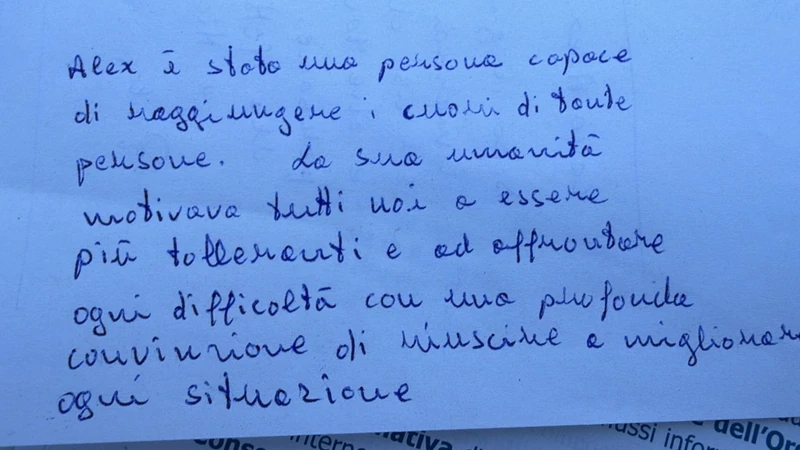 Alex è stata una persona capace
di raggiungere i cuori di tante
persone. La sua umanità
motivava tutti noi a essere
più tolleranti e ad affrontare
ogni difficoltà con una profonda
convinzione di riuscire a migliorar
ogni situazione
dell'Or
ativa
Conse
interno
lussi infor